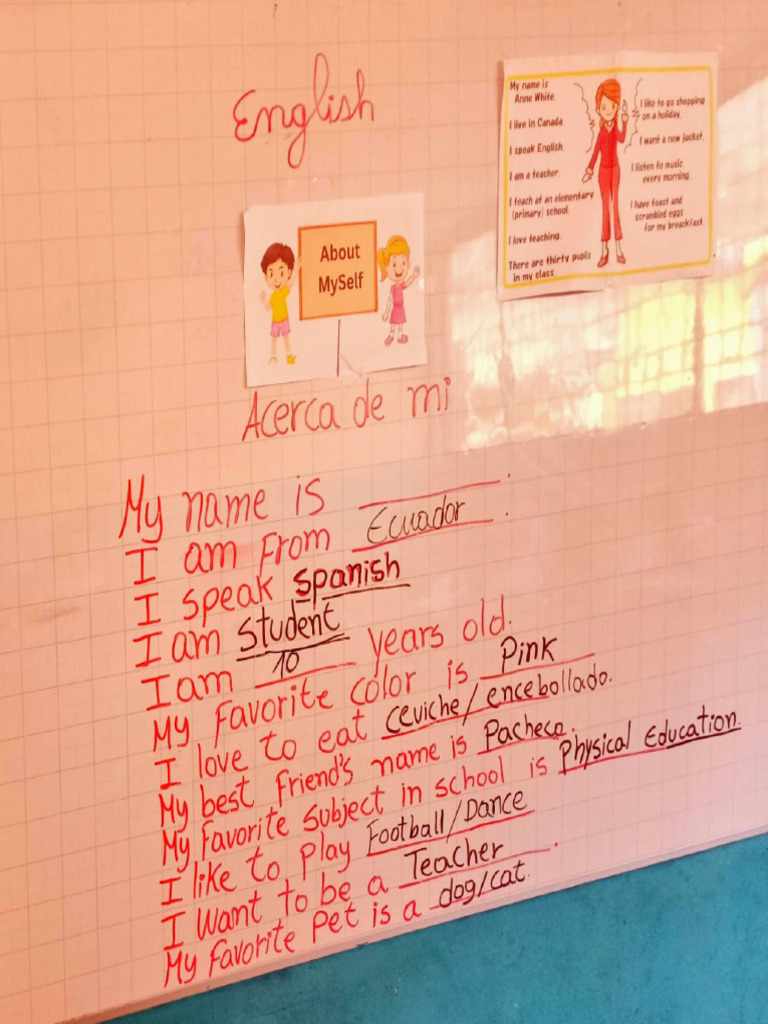 English
My name is
Anne White.
I live in Canada.
I speak English.
I am a teacher.
I teach at an elementary
(primary) school.
I love teaching.
There are thirty pupils
in my class.
I like to go shopping
on a holiday.
I want a new jacket.
I listen to music
every morning.
I have toast and
scrambled eggs
for my breackfast.
About
MySelf
Acerca de mi
My name is ________.
I am From Ecuador.
I speak spanish
I am student
I am 10 years old.
My Favorite color is Pink
I love to eat ceviche/encebollado.
My best Friend's name is Pacheco.
My Favorite Subject in school is physical Education.
I like to play Football/Dance
I want to be a Teacher.
My Favorite Pet is a dog/cat.